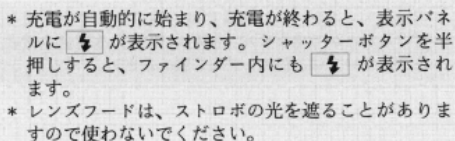 * 充電が自動的に始まり、充電が終わると、表示パネ
ルに ⚡ が表示されます。シャッターボタンを半
押しすると、ファインダー内にも ⚡ が表示され
ます。
* レンズフードは、ストロボの光を遮ることがありま
すので使わないでください。